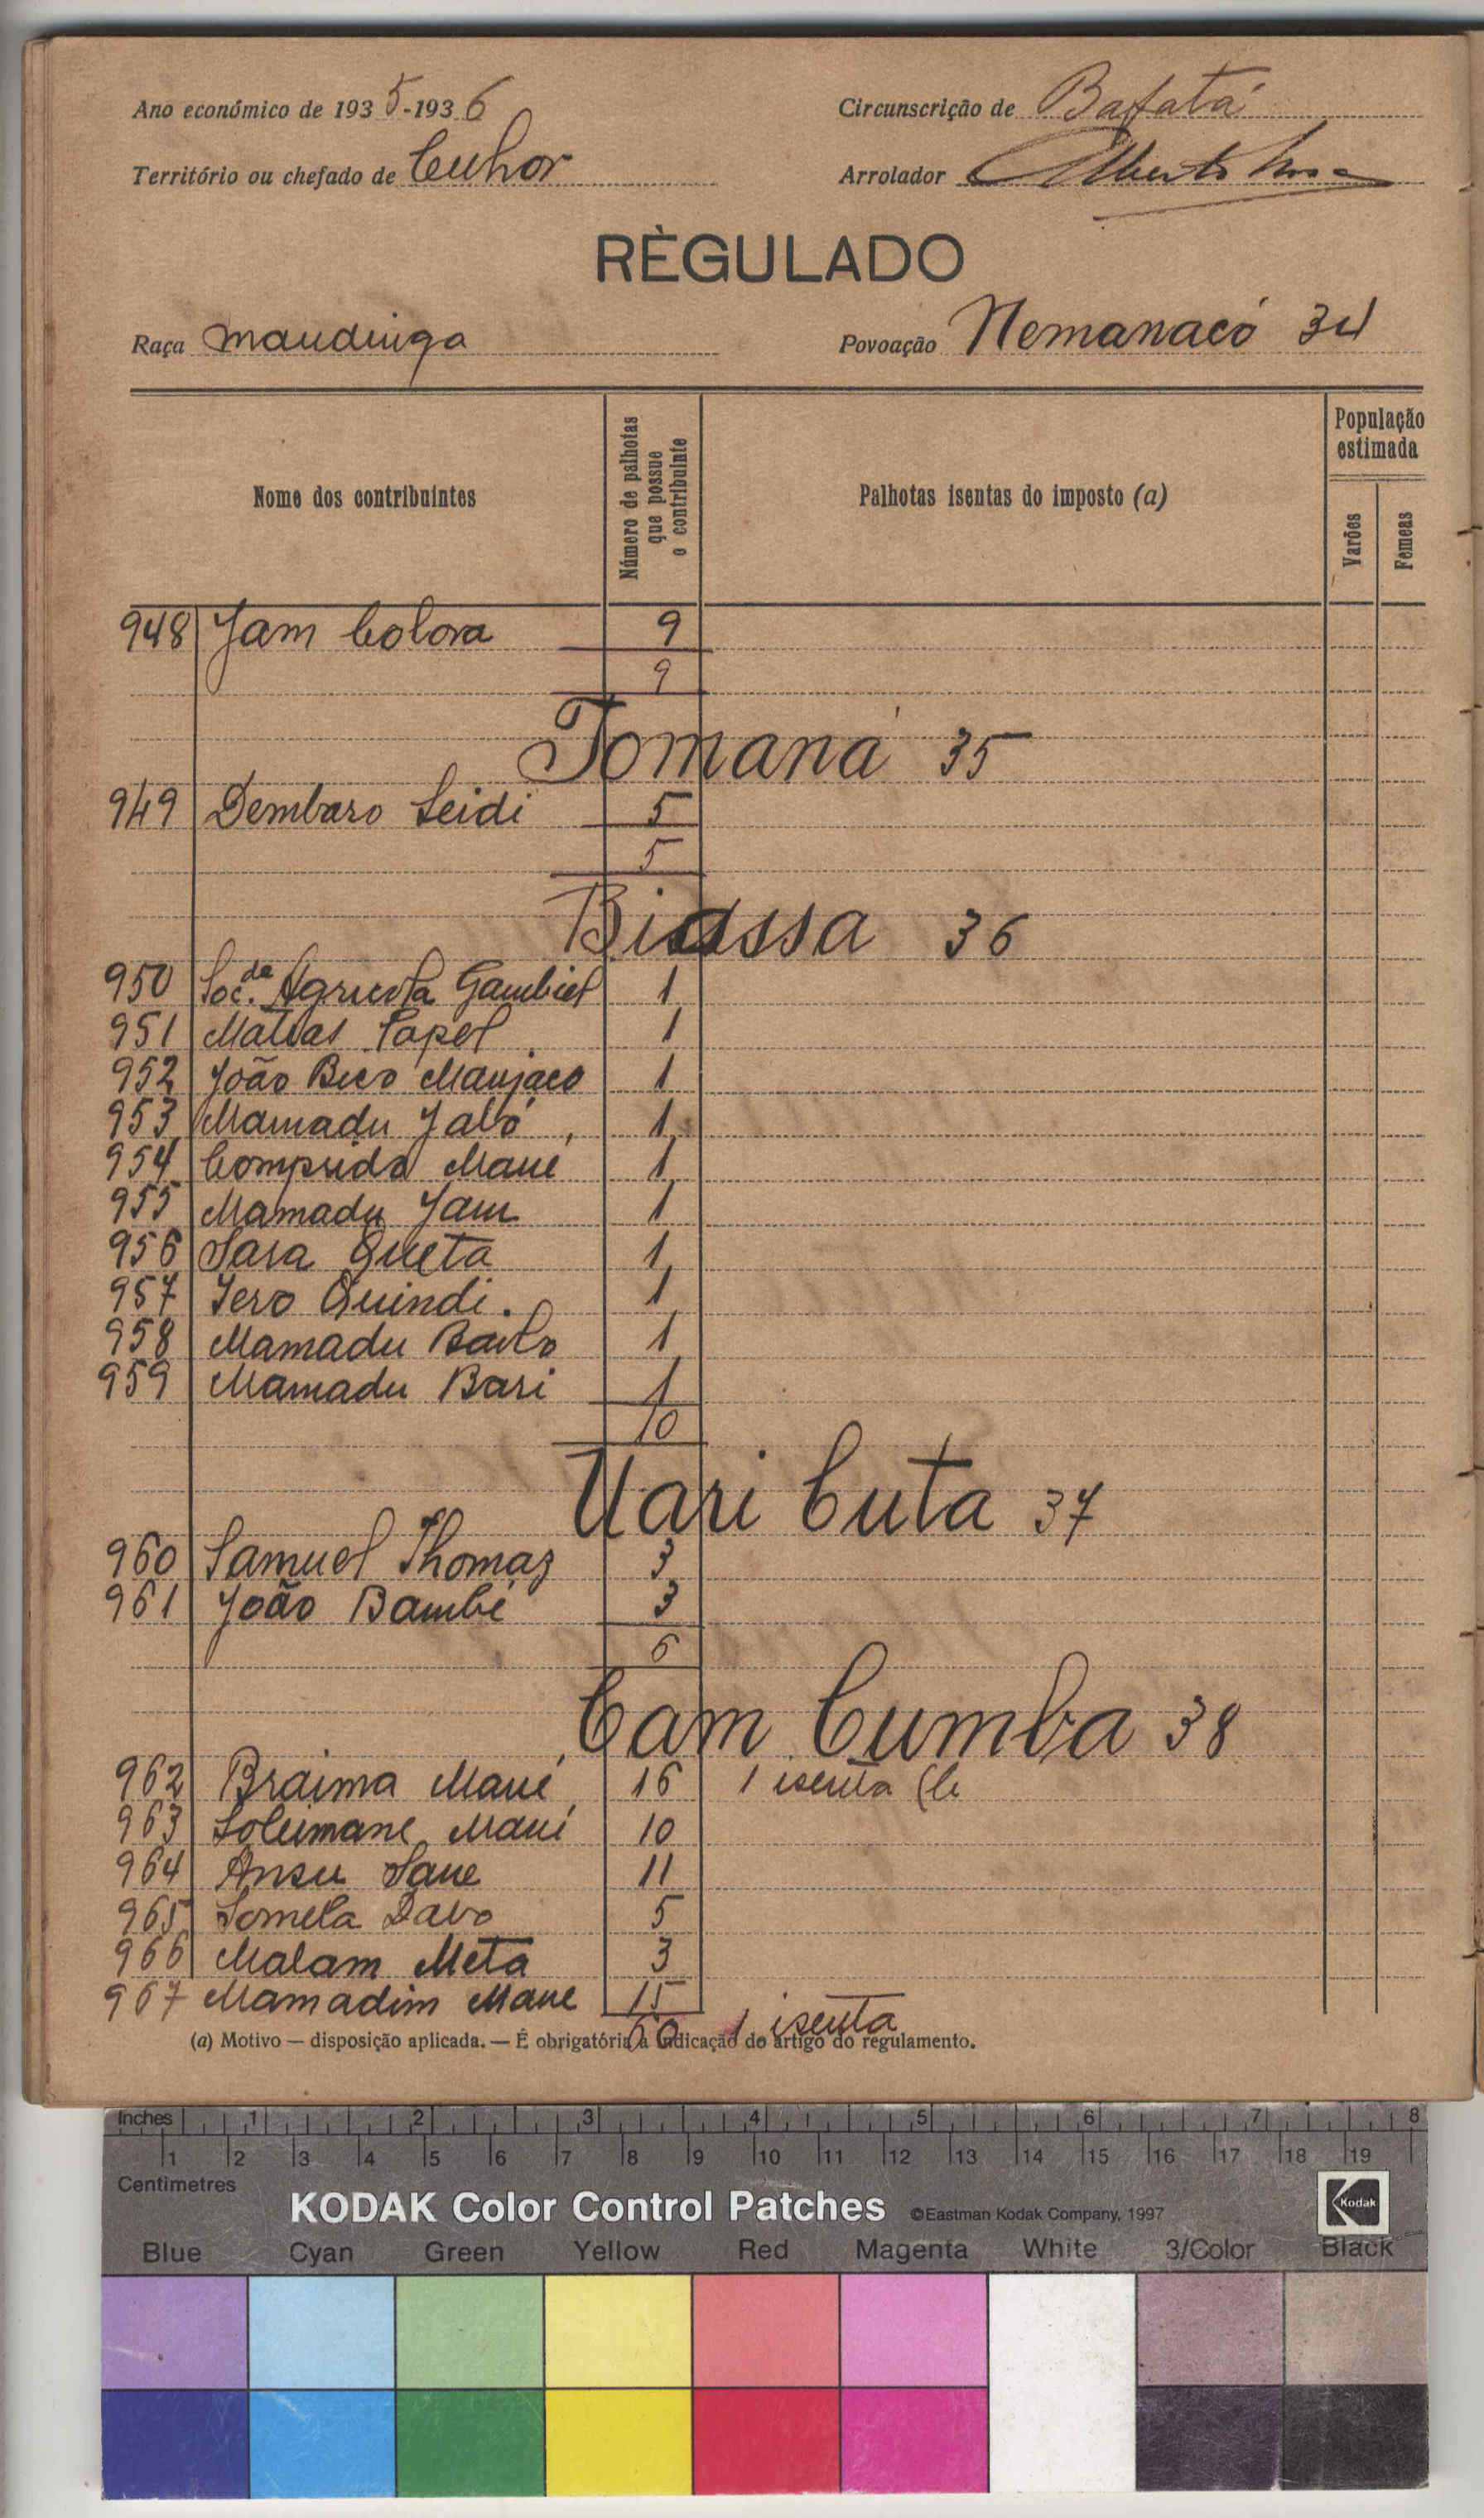 Ano económico de 1935-1936
Circunscrição de Bafatá
Território ou chefado de Cuhor
Arrolador Alberto
RÈGULADO
Raça mandinga
Povoação Nemanacó 34
Nome dos contribuintes
Número de palhotas que possue o contribuinte
Palhotas isentas do imposto (a)
População estimada
Varões
Fêmeas
948 Jam Colora 9
9
Tomaná 35
949 Dembaro Seidi 5
5
Biassa 36
950 Soc.de Agricola Gambiel 1
951 Matias Papel 1
952 João Bico Manjaco 1
953 Mamadu Jaló 1
954 Comprida Mané 1
955 Mamadu Jam 1
956 Sara Queta 1
957 Iero Quindi. 1
958 Mamadu Bailo 1
959 Mamadu Bari 1
10
Uari Cuta 37
960 Samuel Thomaz 3
961 João Bambé 3
6
Cam Cumba 38
962 Braima Mané 16 1 isenta
963 Soleimane Mané 10
964 Ansu Sane 11
965 Somela Davo 5
966 Malam Meta 3
967 Mamadim Mane 15
60 1 isenta
(a) Motivo — disposição aplicada. — É obrigatória a indicação do artigo do regulamento.
Inches 1 2 3 4 5 6 7 8
1 2 3 4 5 6 7 8 9 10 11 12 13 14 15 16 17 18 19
Centimetres
KODAK Color Control Patches ©Eastman Kodak Company, 1997
Kodak
Blue Cyan Green Yellow Red Magenta White 3/Color Black